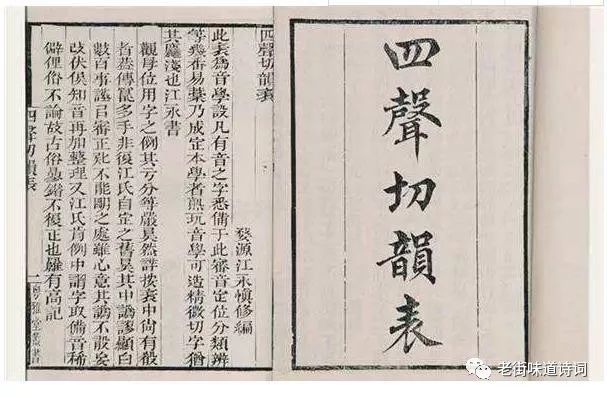 四聲切韻表
四聲切韻表
婺源江永慎修編
此表爲音學設凡有音之字悉備于此審音定位分類辨
等幾番易藁乃成定本學者熟玩音學可造精微切字猶
其麤淺也江永書
觀母位用字之例其分等嚴然詳按表中尚有
者葢傳多手非復江氏自定之舊其中譌謬顯白
數百事謹審正不能之處雖心意其譌不敢妄
改伏俟知音再加整理又江氏例中謂字取備音稀
僻俚俗不論故古俗錯不復正也有高記
四聲切韻表
一
粤雅堂叢書
老街味道诗词